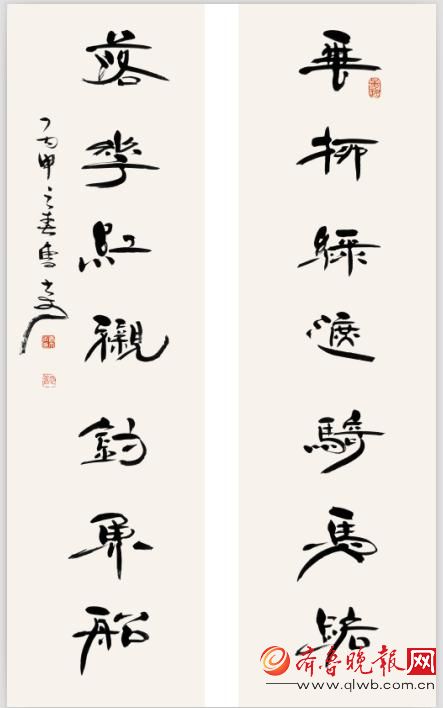 垂柳綠遮騎馬路
落花紅襯釣魚船
丙申之春雪
齐鲁晚报网
www.qlwb.com.cn